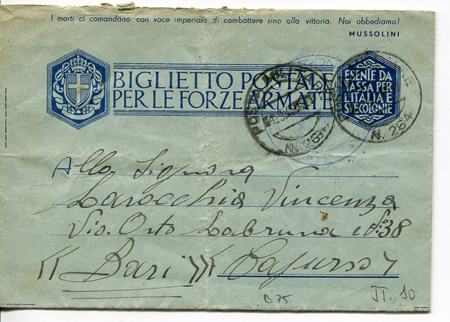 I morti ci comandano con voce imperiosa di combattere sino alla vittoria. Noi obbediamo!
MUSSOLINI
BIGLIETTO POSTALE
PER LE FORZE ARMATE
ESENTE DA
TASSA PER
L'ITALIA E
SUE COLONIE
POSTA
N. 264
N. 264
Alla Signora
Larocchia Vincenza
Via Orto Labruna N° 38
« Bari »
B 75
IT. 10